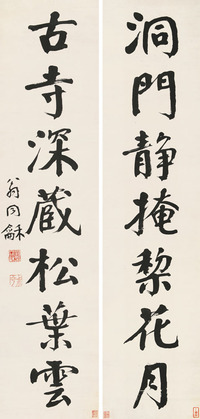 洞門静掩梨花月
古寺深藏松葉雲
翁同龢